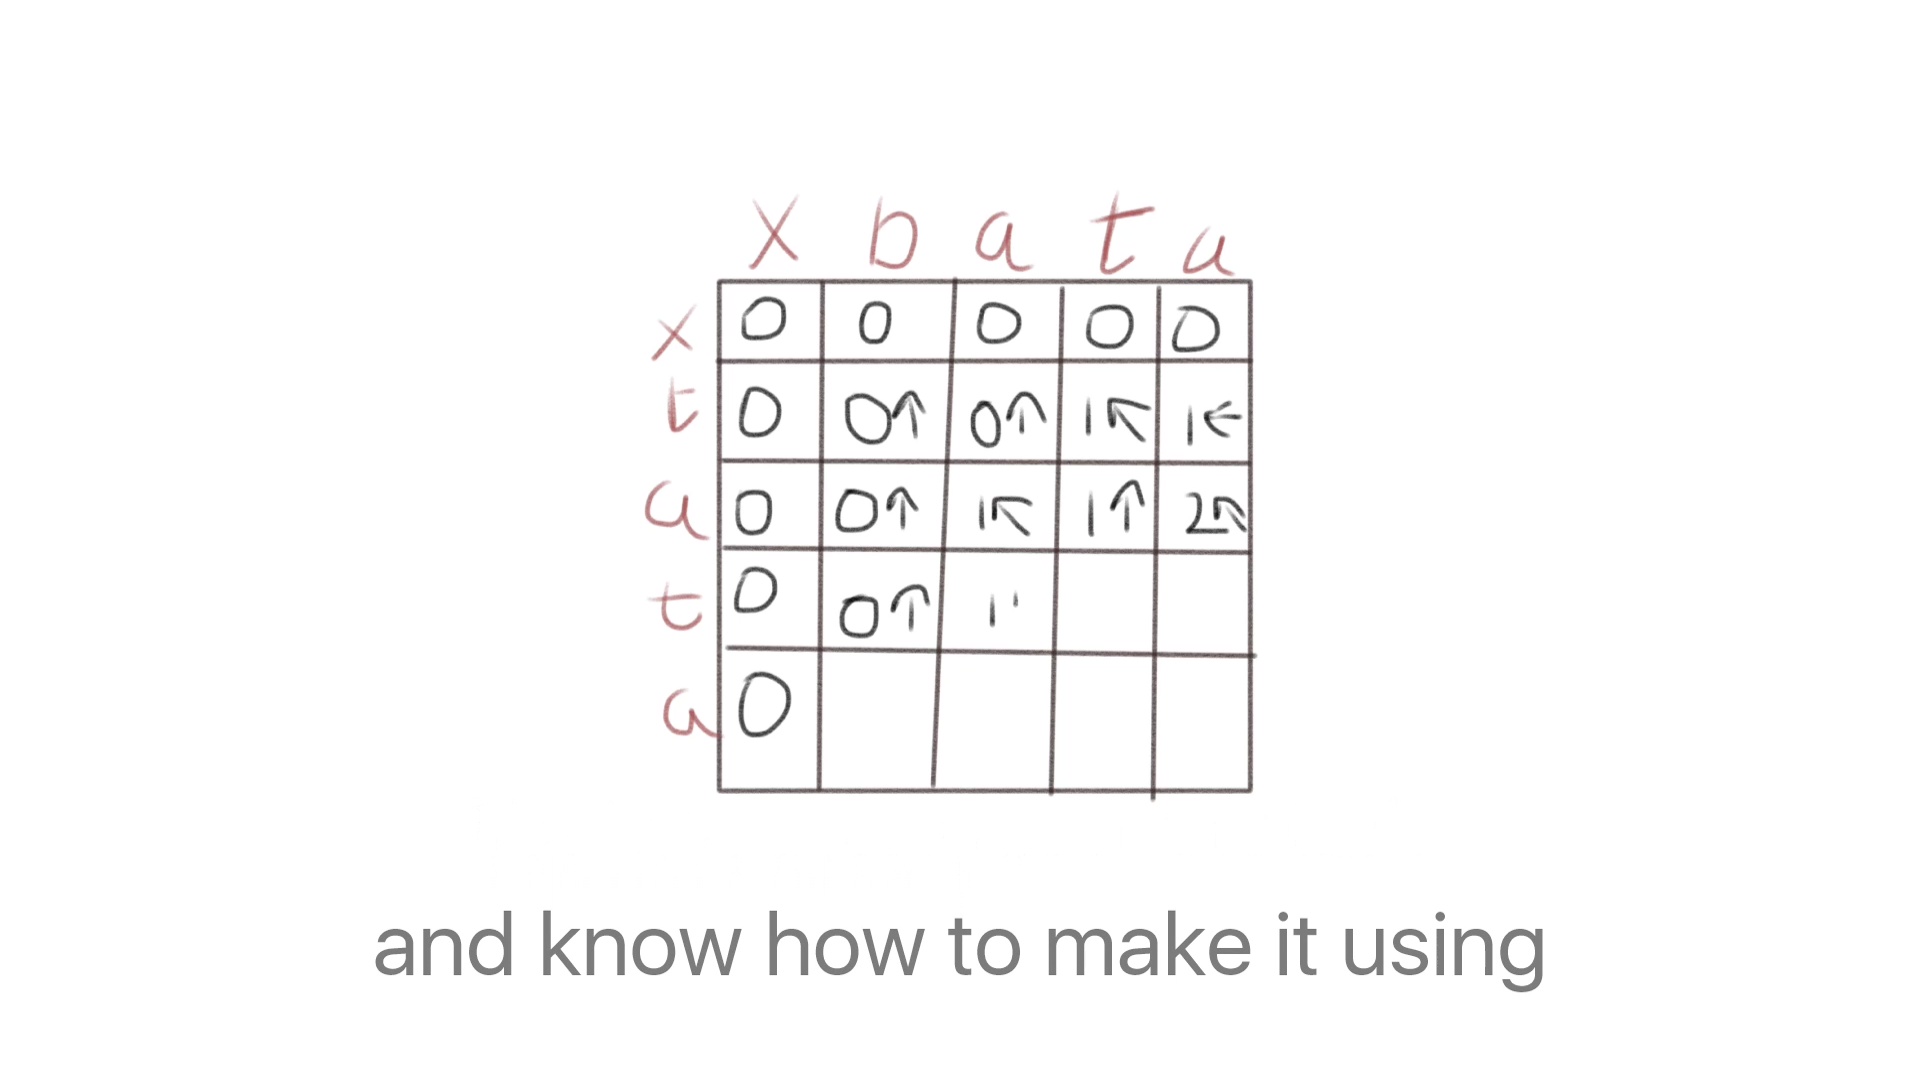 x b a t a
x 0 0 0 0 0
t 0 0↑ 0↑ 1↖ 1←
a 0 0↑ 1↖ 1↑ 2↖
t 0 0↑ 1'
a 0
and know how to make it using